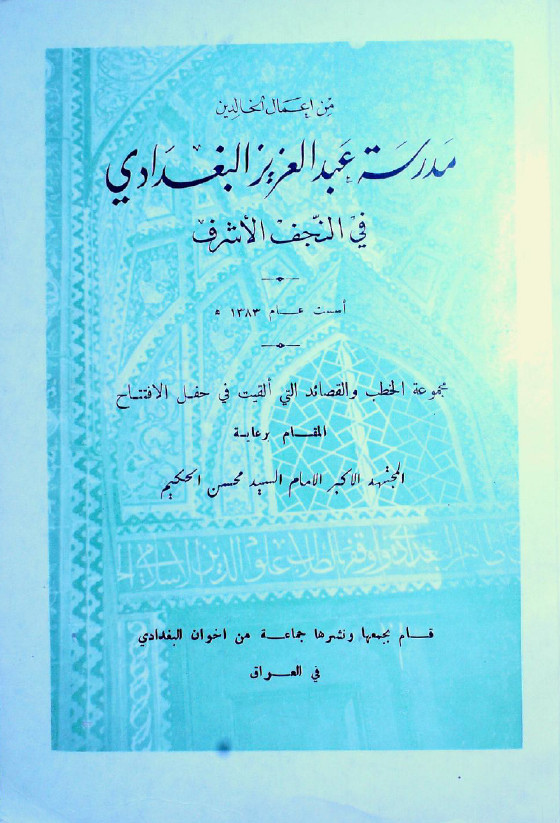 من اعمال الخالدين
مدرسة عبد العزيز البغدادي
في النجف الأشرف
أسست عام ١٣٨٣ ه
مجموعة الخطب والقصائد التي ألقيت في حفل الافتتاح
المقام برعاية
المجتهد الاكبر الامام السيد محسن الحكيم
البغدادي واوقفها لطلاب علوم الدين الاسلامي
قام بجمعها ونشرها جماعة من اخوان البغدادي
في العراق